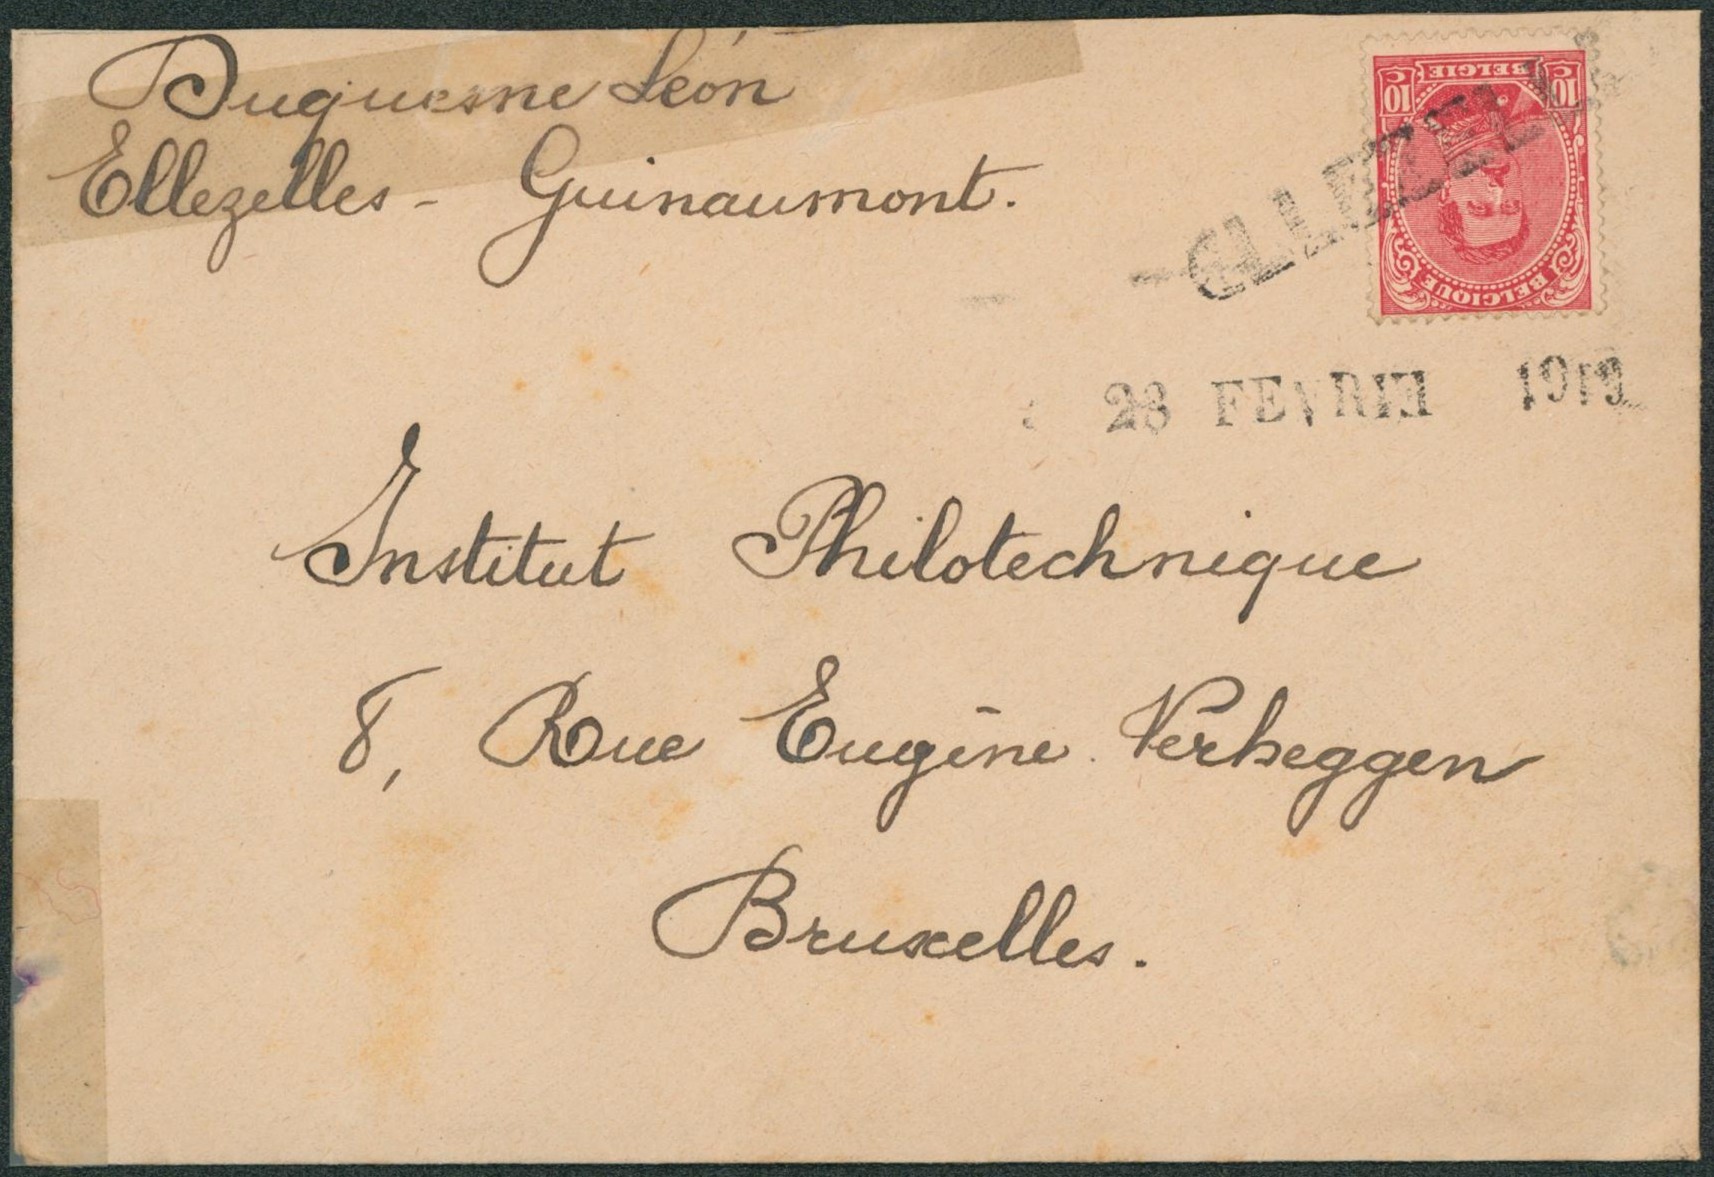 Duquesne Léon
Ellezelles - Guinaumont.
10 BELGIE 10
BELGIQUE
ELLEZELL
23 FEVRIE 1919
Institut Philotechnique
8, Rue Eugène Verheggen
Bruxelles.